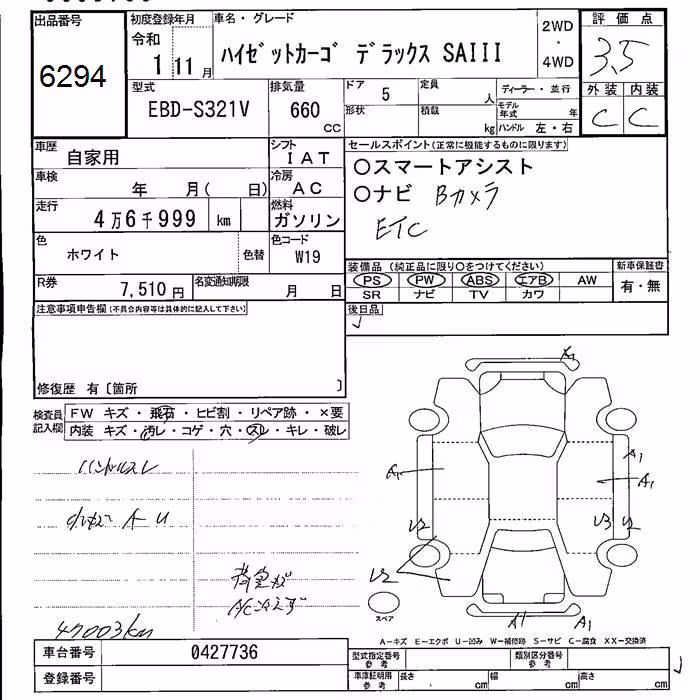 出品番号
6294
初度登録年月
令和
1 11 月
車名・グレード
ﾊｲｾﾞｯﾄｶｰｺﾞ ﾃﾞﾗｯｸｽ SAIII
2WD
・
4WD
評価点
3.5
外装 内装
C C
型式
EBD-S321V
排気量
660
CC
ドア 5
形状
定員
人
積載
kg
ディーラー・並行
モデル年式 年
ハンドル 左・右
車歴 自家用
シフト IAT
車検 年 月( 日)
冷房 AC
走行 4万6千999 km
燃料 ガソリン
色 ホワイト
色替
色コード W19
R券 7,510円
名変通知期限 月 日
セールスポイント(正常に機能するものに限ります)
〇スマートアシスト
〇ナビ Bカメラ
ETC
装備品(純正品に限り〇をつけてください)
PS PW ABS エアB AW
SR ナビ TV カワ
新車保証書
有・無
後日品
注意事項申告欄(不具合内容等は具体的に記入して下さい)
修復歴 有〔箇所 〕
検査員記入欄
FW キズ・飛石・ヒビ割・リペア跡・×要
内装 キズ・汚レ・コゲ・穴・スレ・キレ・破レ
ハンドルスレ
A U
A/C冷えず
47003km
A1
A1
A1
A1
U2
U3
U2
U2
A1
A1
スペア
A-キズ E-エクボ U-凹み W-補修跡 S-サビ C-腐食 XX-交換済
車台番号 0427736
登録番号
型式指定番号 参考
類別区分番号 参考
車庫証明用 参考
長さ cm
幅 cm
高さ cm